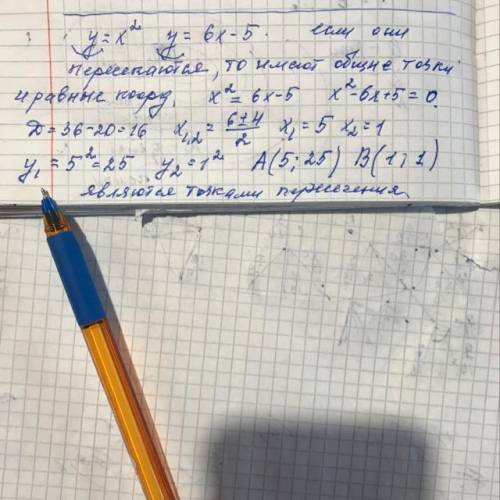 y = x² y = 6x - 5. если они
пересекаются, то имеют общие точки
и равные коорд. x² = 6x - 5 x² - 6x + 5 = 0
D = 36 - 20 = 16 x₁,₂ = (6 ± 4)/2 x₁ = 5 x₂ = 1
y₁ = 5² = 25 y₂ = 1² A(5; 25) B(1; 1)
являются точками пересечения